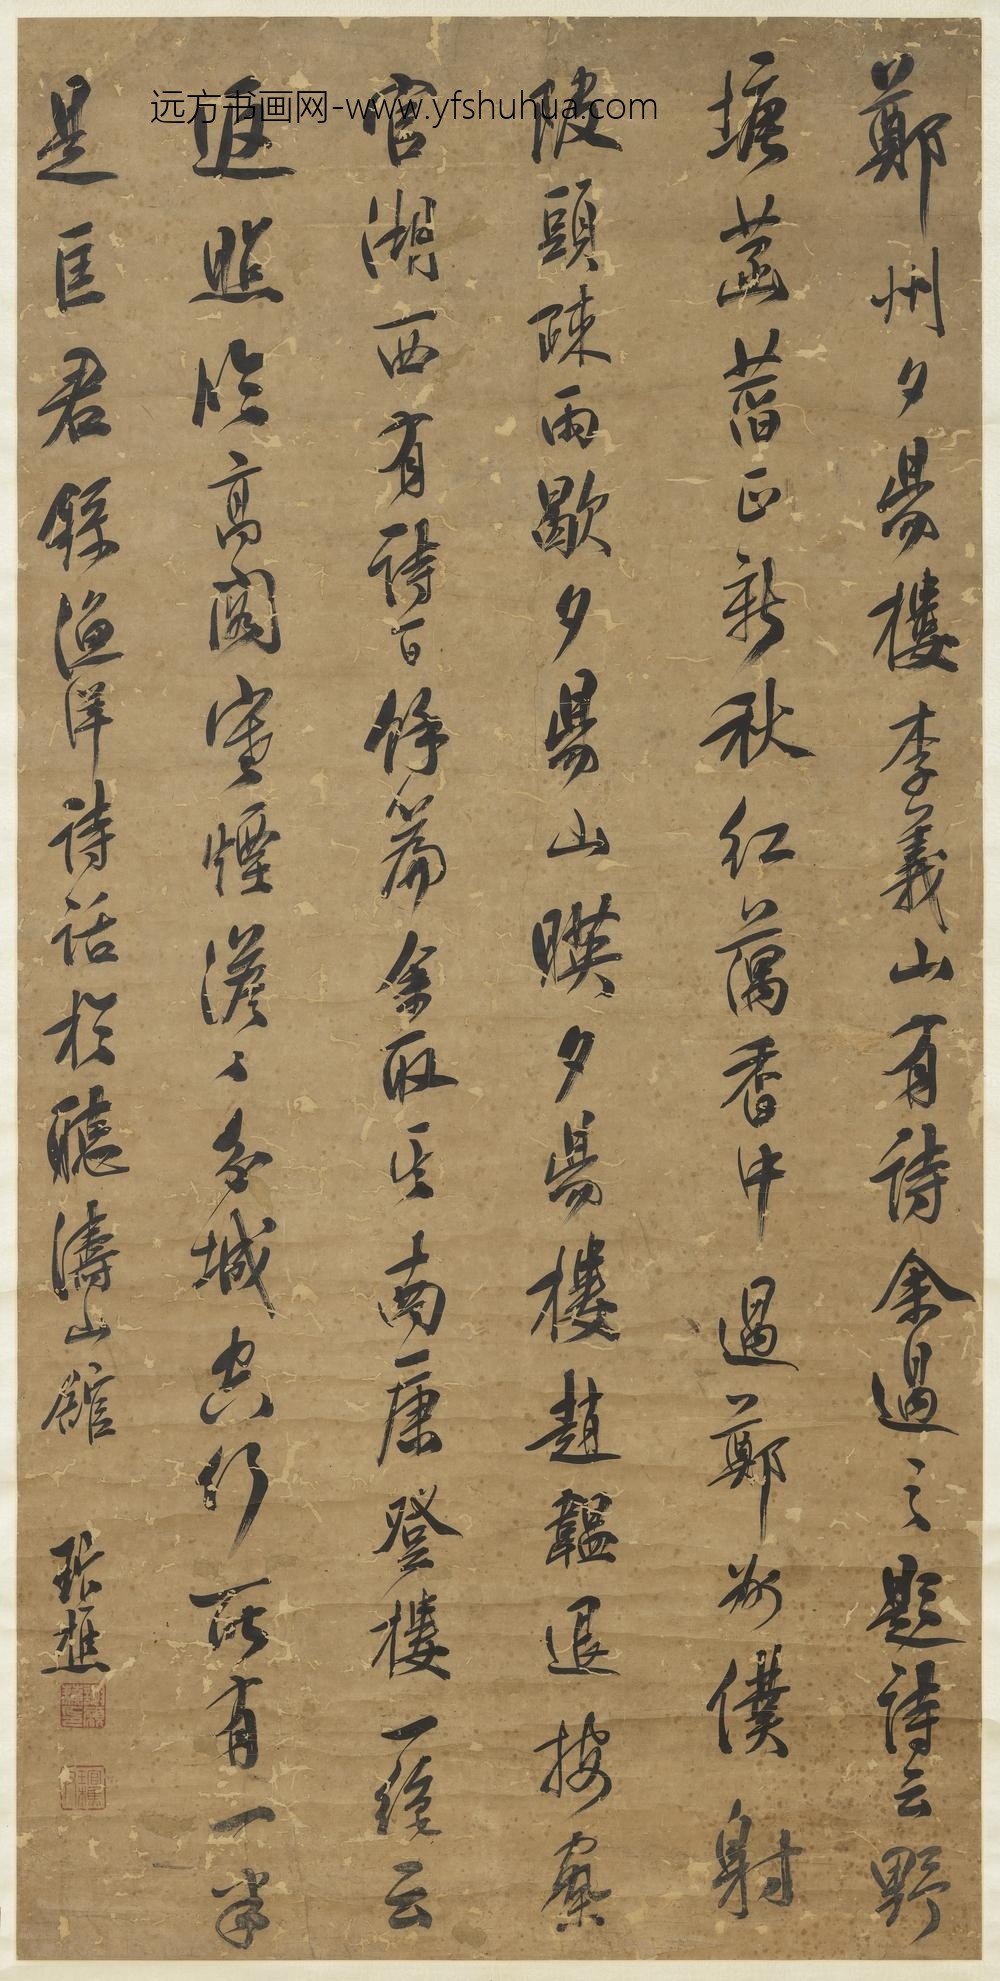 远方书画网-www.yfshuhua.com
鄭州夕陽樓李義山有詩余過之題詩云野
塘菡萏正新秋紅藕香中過鄭州僕射
陂頭疎雨歇夕陽山暎夕陽樓趙韞退按察
官湖西有詩百餘篇余取其南康登樓一絕云
返照臨高閣寒煙澹〻孤城空行所有一半
是匡君錄漁洋詩話於聽濤山館